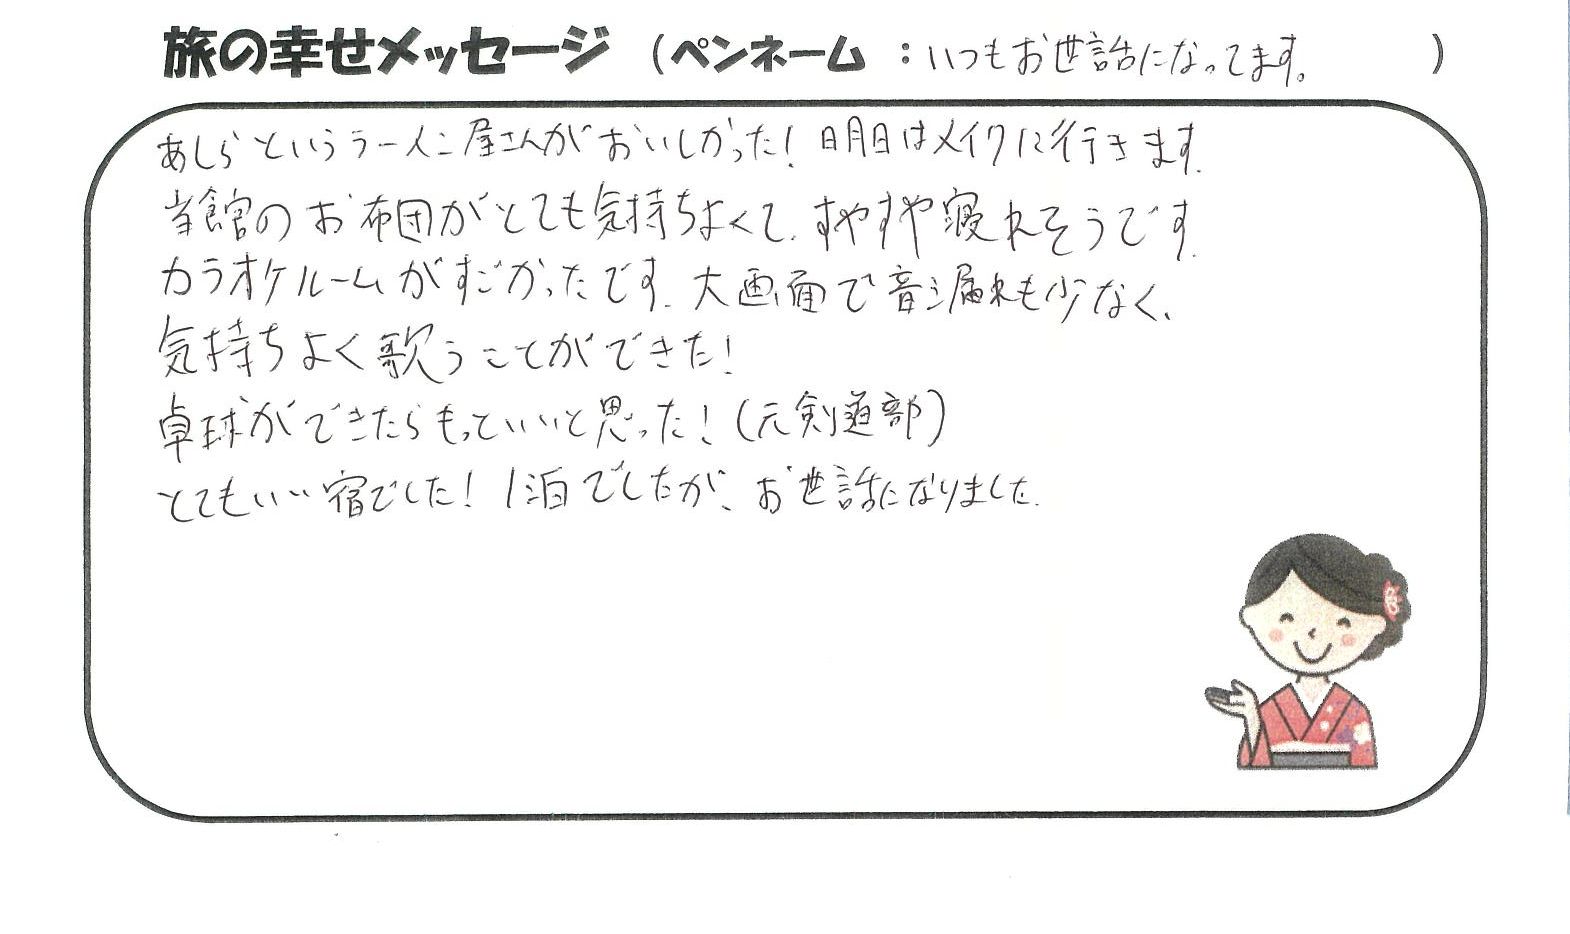 旅の幸せメッセージ （ペンネーム ：いつもお世話になってます。 ）
あしらというラーメン屋さんがおいしかった！明日はメイクに行きます。
当館のお布団がとても気持ちよくて、すやすや寝れそうです。
カラオケルームがすごかったです。大画面で音漏れも少なく、
気持ちよく歌うことができた！
卓球ができたらもっといいと思った！（元剣道部）
とてもいい宿でした！1泊でしたが、お世話になりました。